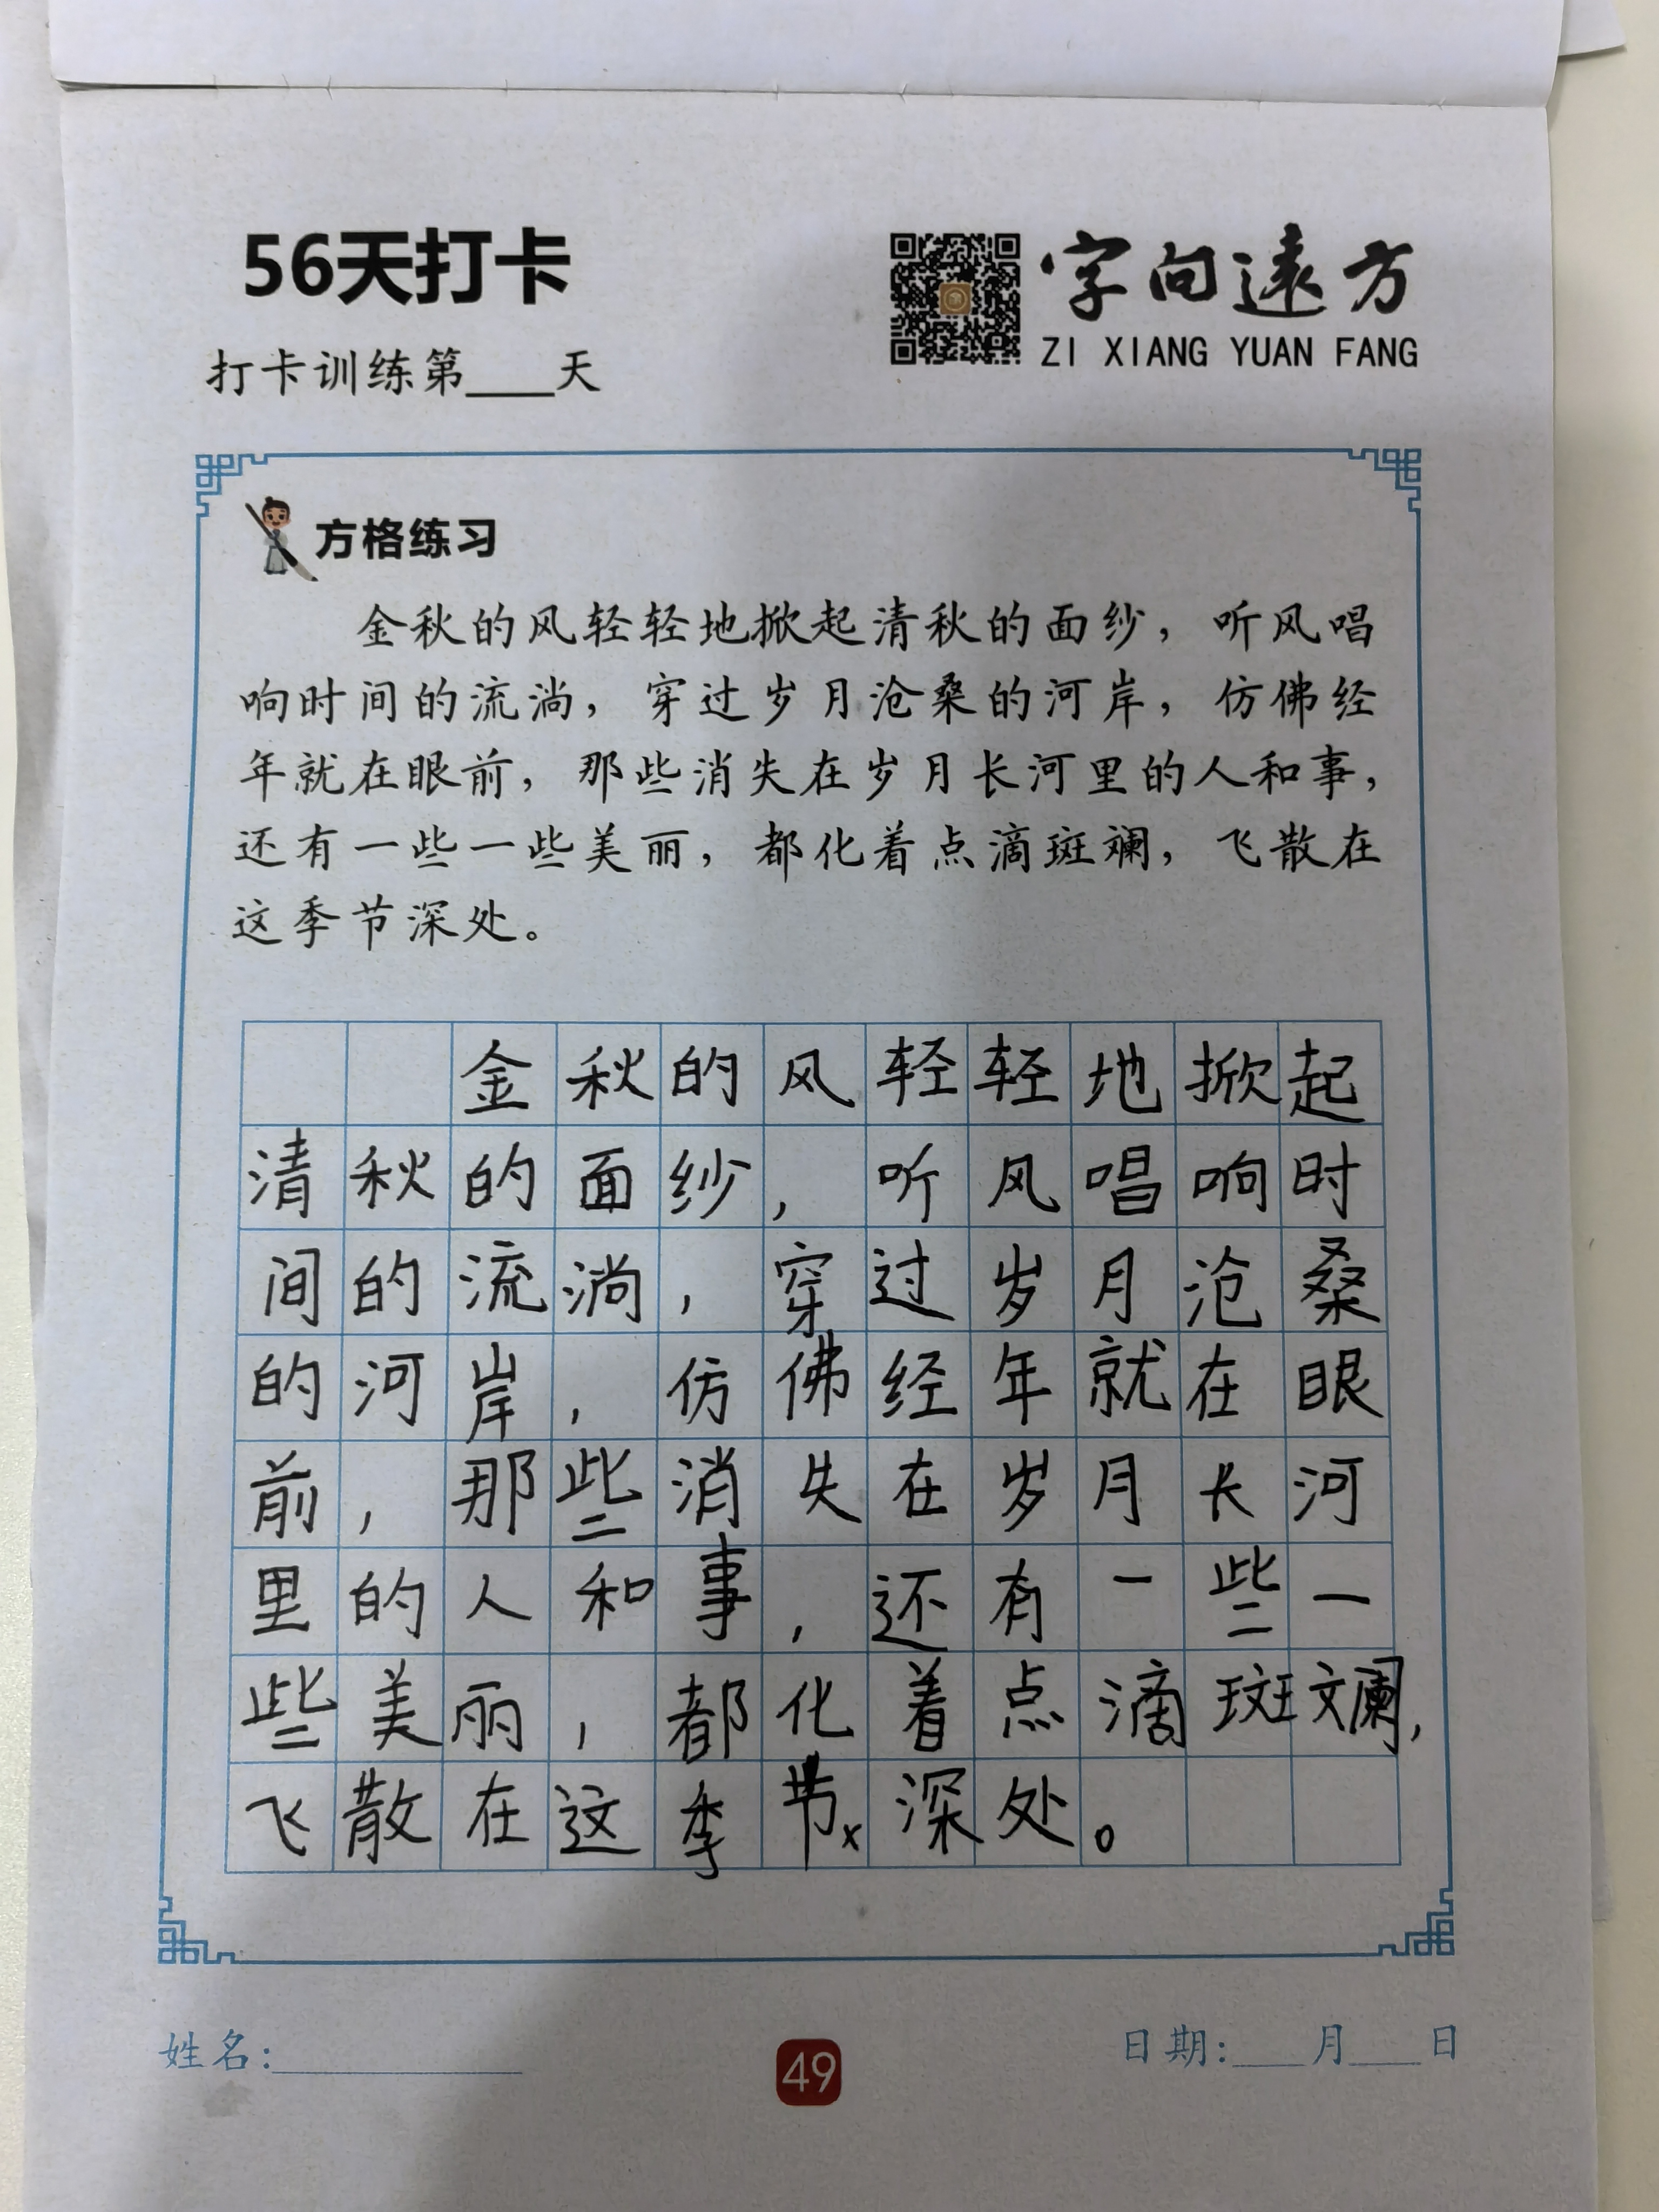 56天打卡
字向遠方
ZI XIANG YUAN FANG
打卡训练第____天
方格练习
金秋的风轻轻地掀起清秋的面纱，听风唱
响时间的流淌，穿过岁月沧桑的河岸，仿佛经
年就在眼前，那些消失在岁月长河里的人和事，
还有一些一些美丽，都化着点滴斑斓，飞散在
这季节深处。
金秋的风轻轻地掀起
清秋的面纱，听风唱响时
间的流淌，穿过岁月沧桑
的河岸，仿佛经年就在眼
前，那些消失在岁月长河
里的人和事，还有一些一
些美丽，都化着点滴斑斓，
飞散在这季节x深处。
姓名:__________
49
日期:___月___日